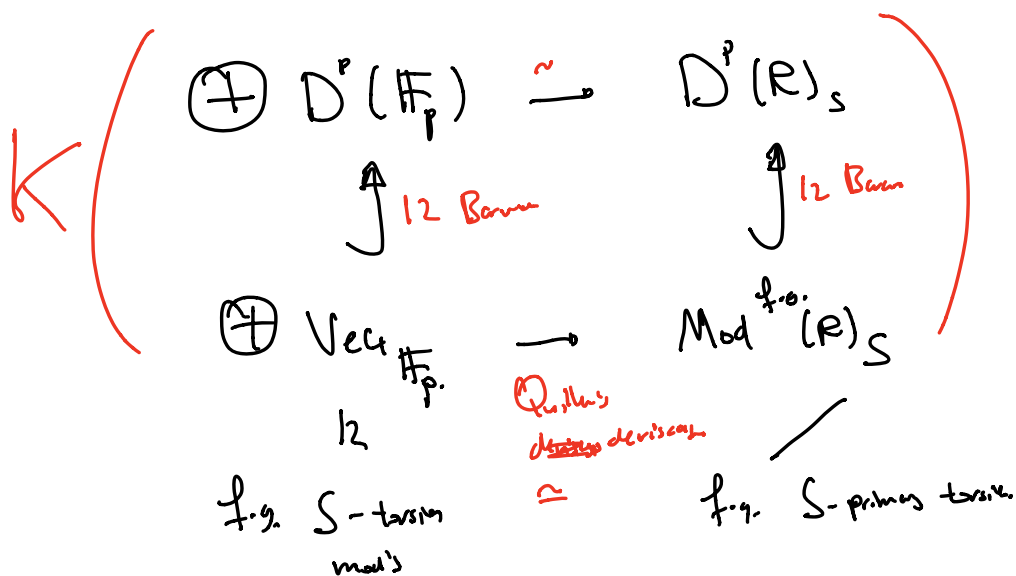 K ( ⊕ D^p(𝔽_p) →~ D^p(R)_S )
12 Barwick 12 Barwick
⊕ Vect_{𝔽_p.} → Mod^{f.g.}(R)_S
Quillen's
devissage
≃
12
f.g. S-torsion f.g. S-primary torsion.
mod's